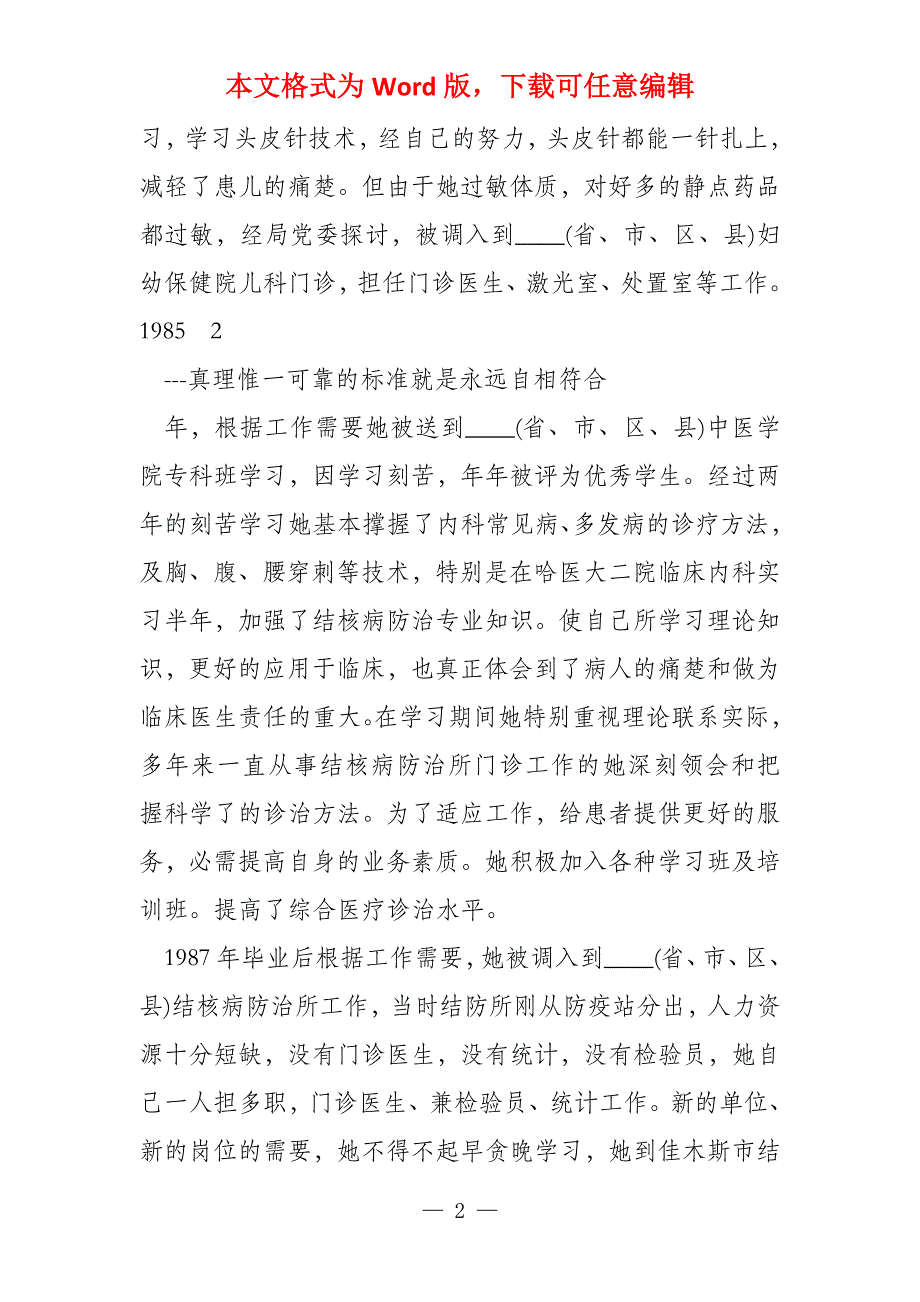 本文格式为 Word 版，下载可任意编辑
习，学习头皮针技术，经自己的努力，头皮针都能一针扎上，
减轻了患儿的痛楚。但由于她过敏体质，对好多的静点药品
都过敏，经局党委探讨，被调入到____(省、市、区、县)妇
幼保健院儿科门诊，担任门诊医生、激光室、处置室等工作。
1985 2
---真理惟一可靠的标准就是永远自相符合
年，根据工作需要她被送到____(省、市、区、县)中医学
院专科班学习，因学习刻苦，年年被评为优秀学生。经过两
年的刻苦学习她基本撑握了内科常见病、多发病的诊疗方法，
及胸、腹、腰穿刺等技术，特别是在哈医大二院临床内科实
习半年，加强了结核病防治专业知识。使自己所学习理论知
识，更好的应用于临床，也真正体会到了病人的痛楚和做为
临床医生责任的重大。在学习期间她特别重视理论联系实际，
多年来一直从事结核病防治所门诊工作的她深刻领会和把
握科学了的诊治方法。为了适应工作，给患者提供更好的服
务，必需提高自身的业务素质。她积极加入各种学习班及培
训班。提高了综合医疗诊治水平。
1987 年毕业后根据工作需要，她被调入到____(省、市、区、
县)结核病防治所工作，当时结防所刚从防疫站分出，人力资
源十分短缺，没有门诊医生，没有统计，没有检验员，她自
己一人担多职，门诊医生、兼检验员、统计工作。新的单位、
新的岗位的需要，她不得不起早贪晚学习，她到佳木斯市结
— 2 —